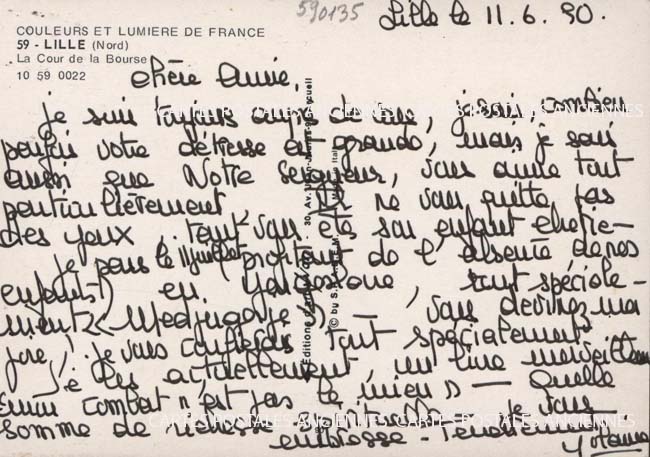 590135
Lille le 11.6.90.
COULEURS ET LUMIERE DE FRANCE
59 - LILLE (Nord)
La Cour de la Bourse
10 59 0022
chère Annie,
je suis toujours auprès de vous, je sais combien
parfois votre détresse est grande, mais je sais
aussi que Notre Seigneur, vous aime tout
particulièrement Il ne vous quitte pas
des yeux. tant vous êtes son enfant chérie -
je pars le juillet profitant de l'absence de nos
enfants) en Yougoslavie, tout spéciale -
ment « Medjugorje » vous devinez ma
joie, je vous confierai tout spécialement
Je lis actuellement, un livre merveilleux
combat n'est pas le mien » - Quelle
somme de richesse je vous
embrasse - Tendrement
CARTES POSTALES ANCIENNES CARTES POSTALES ANCIENNES
CARTES POSTALES ANCIENNES CARTES POSTALES ANCIENNES